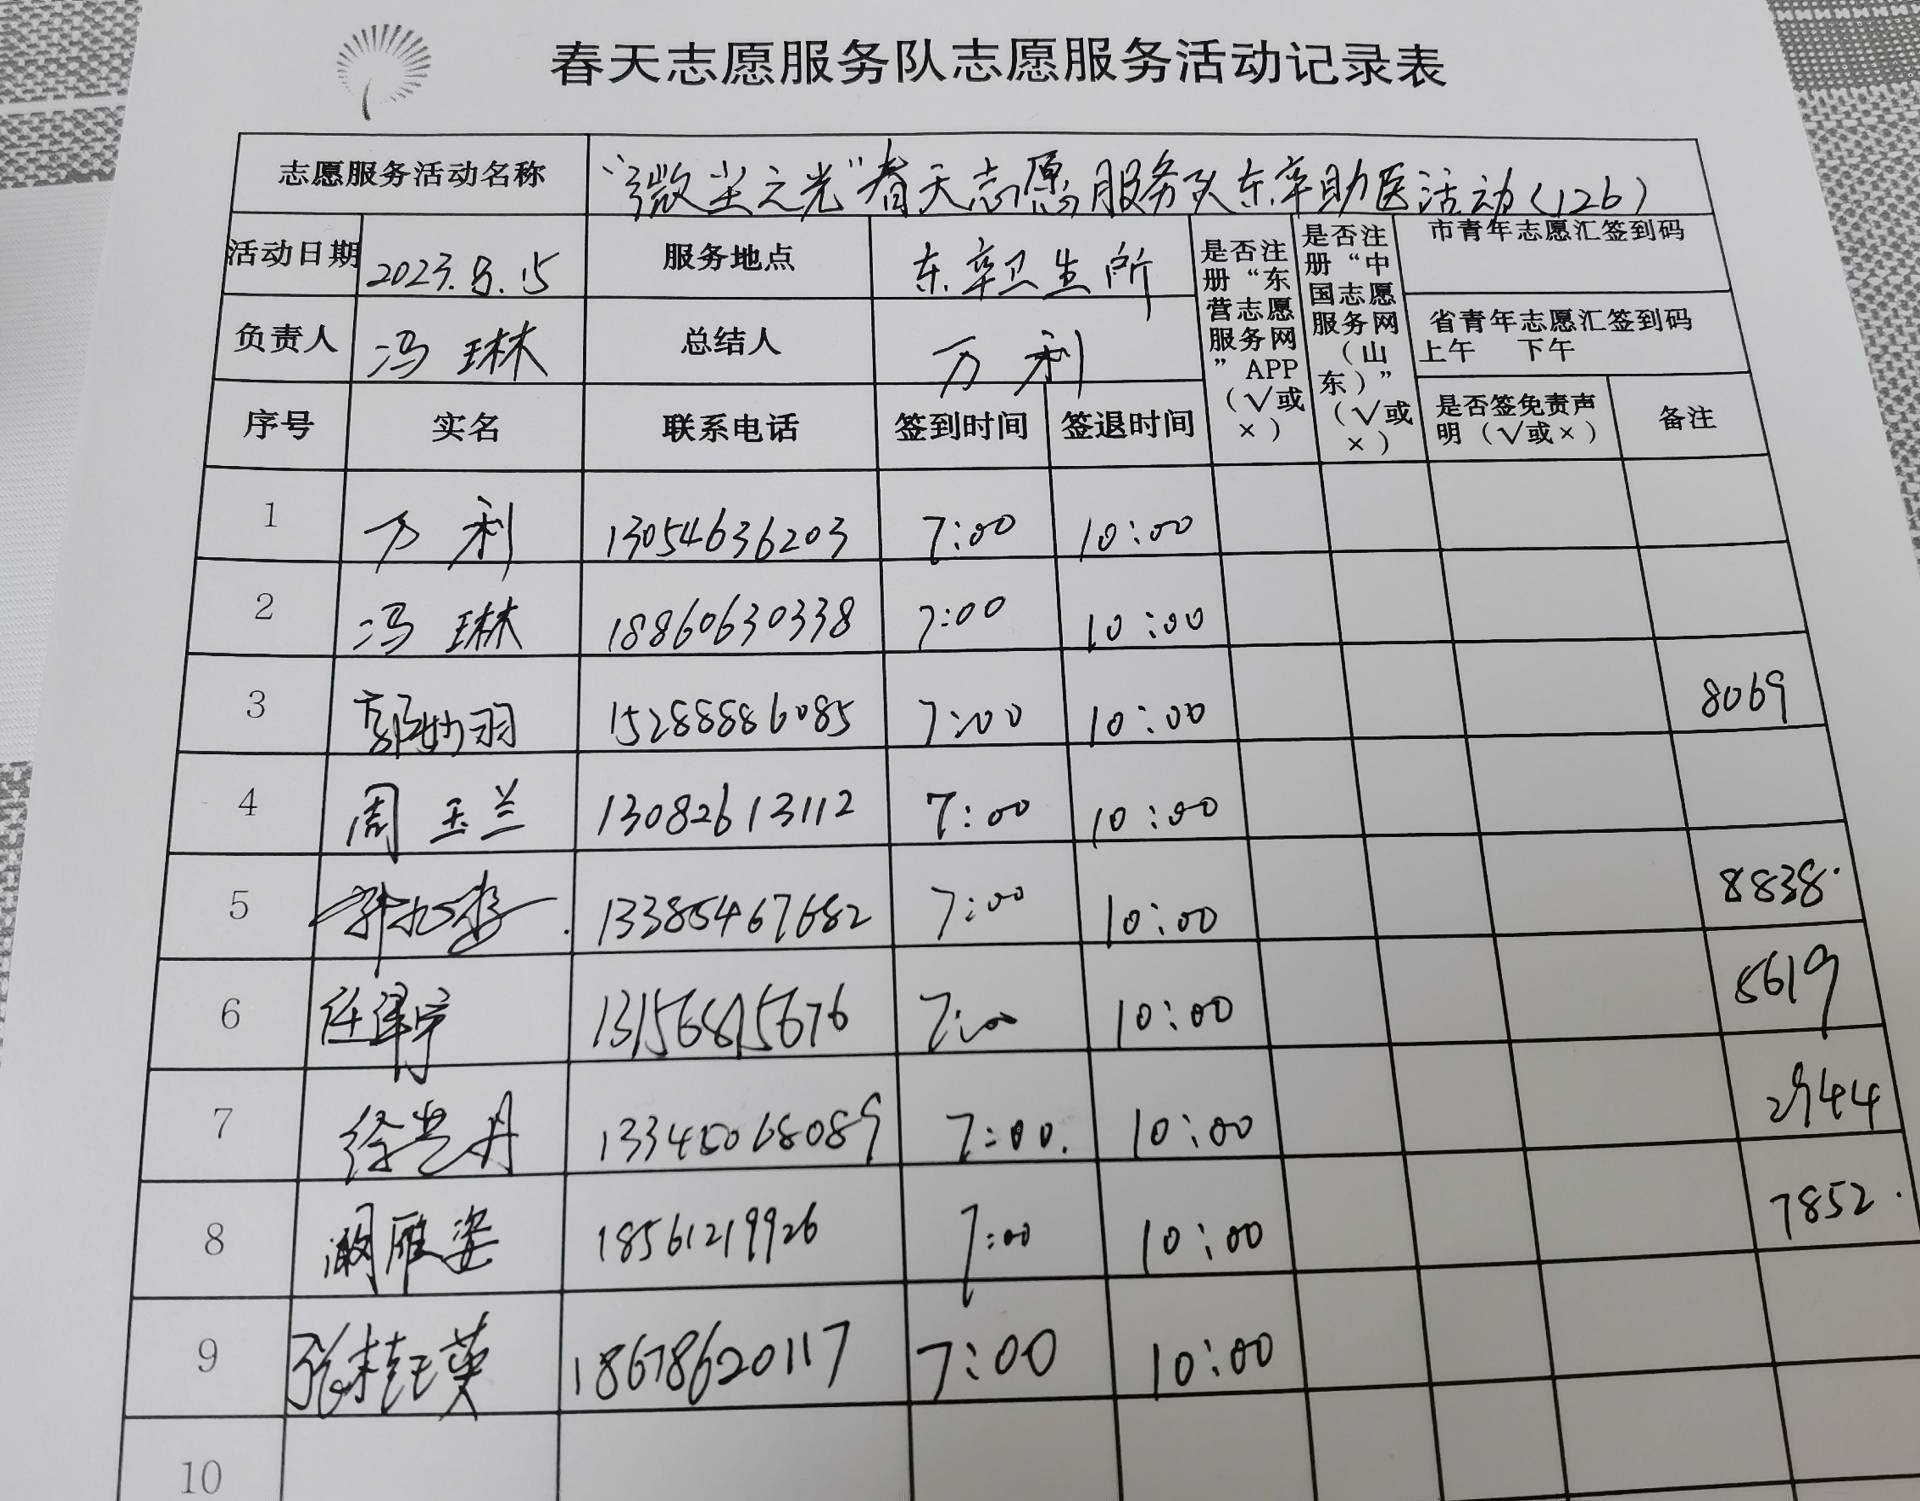 春天志愿服务队志愿服务活动记录表
志愿服务活动名称 “微尘之光”春天志愿服务队东辛助医活动(126)
活动日期 2023.9.15 服务地点 东辛卫生所
是否注册“东营志愿服务网”APP(√或×)
是否注册“中国志愿服务网(山东)”(√或×)
市青年志愿汇签到码
负责人 冯琳 总结人 万利
省青年志愿汇签到码
上午 下午
序号 实名 联系电话 签到时间 签退时间 是否签免责声明(√或×) 备注
1 万利 13054636203 7:00 10:00
2 冯琳 18860630338 7:00 10:00
3 15288886085 7:00 10:00 8069
4 周玉兰 13082613112 7:00 10:00
5 13385467682 7:00 10:00 8838.
6 13156815676 7:00 10:00 8619
7 7:00. 10:00 2944
8 雁姿 18561219926 7:00 10:00 7852.
9 张桂英 18678620117 7:00 10:00
10